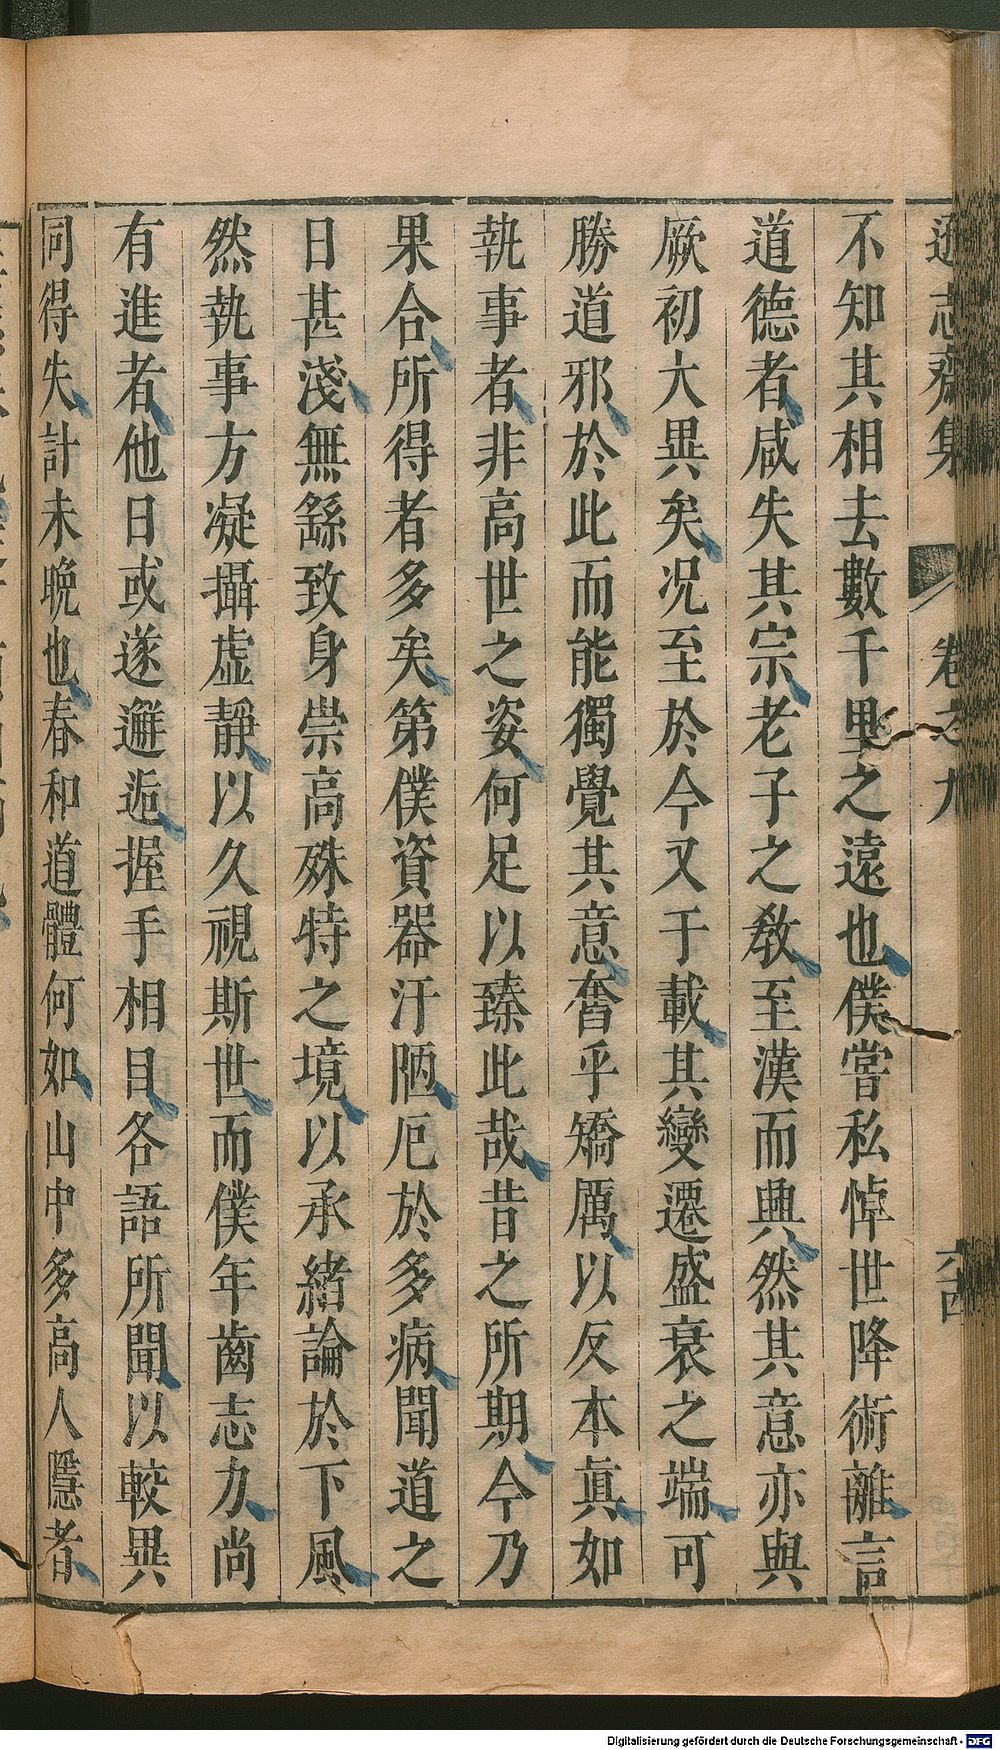 遜志齋集 卷之九 六四
不知其相去數千里之遠也僕嘗私悼世降術離言
道德者咸失其宗老子之敎至漢而興然其意亦與
厥初大異矣况至於今又千載其變遷盛衰之端可
勝道邪於此而能獨覺其意奮乎矯厲以反本眞如
執事者非高世之姿何足以臻此哉昔之所期今乃
果合所得者多矣第僕資器汙陋厄於多病聞道之
日甚淺無繇致身崇高殊特之境以承緒論於下風
然執事方凝攝虛靜以久視斯世而僕年齒志力尚
有進者他日或遂邂逅握手相目各語所聞以較異
同得失計未晚也春和道體何如山中多高人隱者
Digitalisierung gefördert durch die Deutsche Forschungsgemeinschaft - DFG